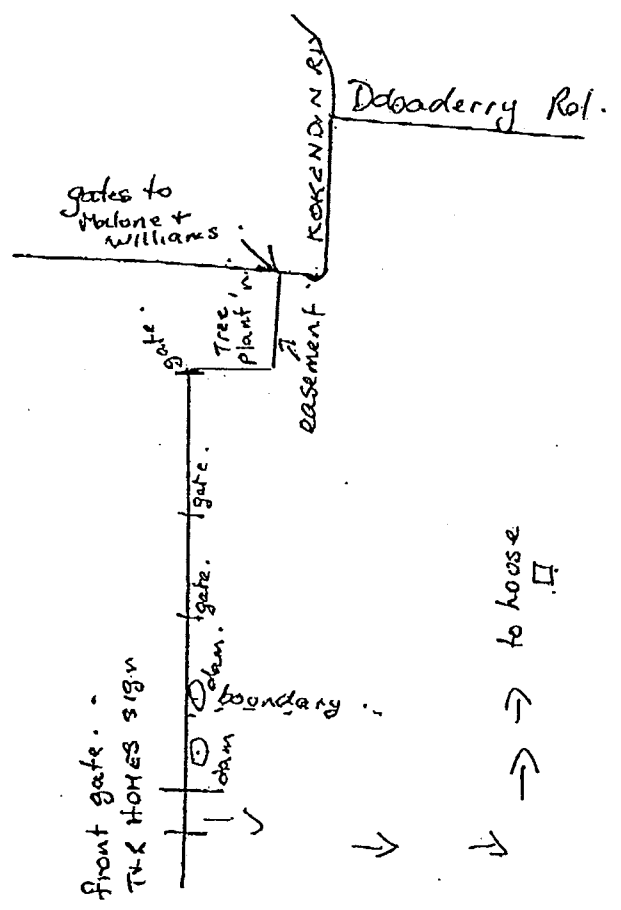 Ddoaderry Rd.
KOKENDIN RD
gates to
Malone +
Williams
Tree
Plant'n.
easement.
gate.
gate.
gate.
dam.
boundary.
dam
front gate.
T&R HOMES sign
to hoose